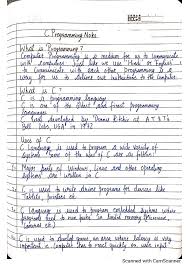 C Programming Notes
What is Programming ?
Computer Programming is a medium for us to communicate
with computers. Just like we use 'Hindi' or 'English'
to communicate with each other, Programming is a
way for us to deliver our instructions to the computer.
What is C ?
C is a programming language
C is one of the oldest and finest programming
languages
C was developed by Dennis Ritchie at AT & T
Bell Labs, USA in 1972
Uses of C
C Language is used to program a wide variety of
systems. Some of the uses of C are as follows:
Major parts of Windows, Linux and other operating
systems are written in C
C is used to write driver programs for devices like
Tablets, printers etc.
C language is used to program embedded systems where
programs need to run faster in limited memory
C is used to develop games, an area where latency is very
important i.e. computer has to react quickly on user input
Scanned with CamScanner